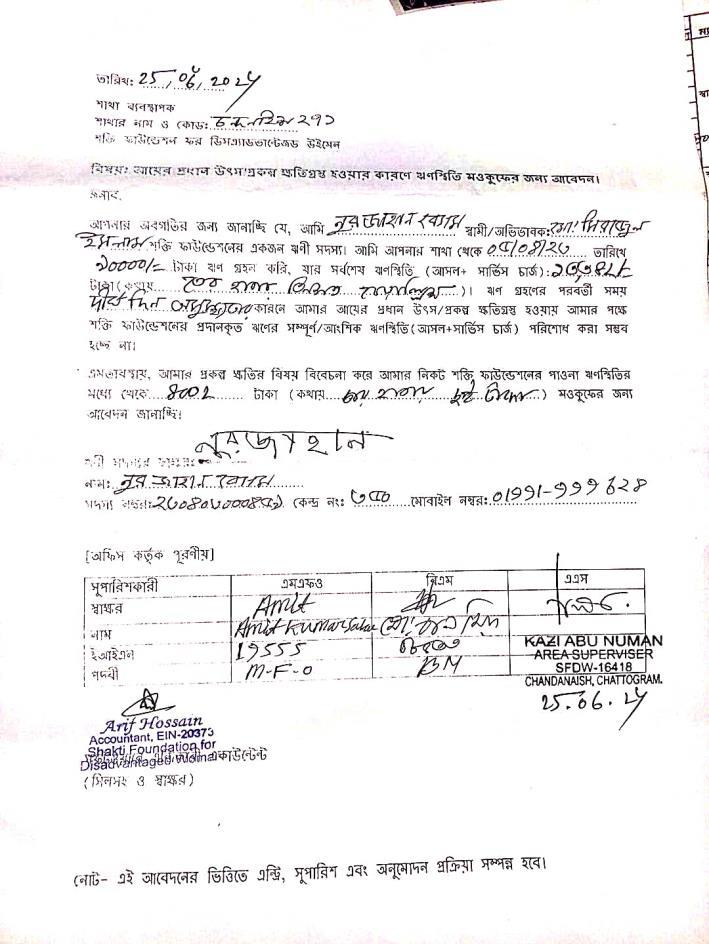 তারিখ: 25/06/2024
শাখা ব্যবস্থাপক
শাখার নাম ও কোড: চন্দনাইশ 291
শক্তি ফাউন্ডেশন ফর ডিসএ্যাডভান্টেজড উইমেন
বিষয়: আয়ের প্রধান উৎস/প্রকল্প ক্ষতিগ্রস্থ হওয়ার কারণে ঋণস্থিতি মওকুফের জন্য আবেদন।
জনাব,
আপনার অবগতির জন্য জানাচ্ছি যে, আমি নুর জাহান বেগম স্বামী/অভিভাবক: মো: সিরাজুল
ইসলাম শক্তি ফাউন্ডেশনের একজন ঋণী সদস্য। আমি আপনার শাখা থেকে তারিখে
টাকা ঋণ গ্রহন করি, যার সর্বশেষ ঋণস্থিতি (আসল+ সার্ভিস চার্জ):
টাকা (কথায় তের হাজার তিনশত )। ঋণ গ্রহণের পরবর্তী সময়
দীর্ঘ দিন কারনে আমার আয়ের প্রধান উৎস/প্রকল্প ক্ষতিগ্রস্থ হওয়ায় আমার পক্ষে
শক্তি ফাউন্ডেশনের প্রদানকৃত ঋণের সম্পূর্ণ/আংশিক ঋণস্থিতি(আসল+সার্ভিস চার্জ) পরিশোধ করা সম্ভব
হচ্ছে না।
এমতাবস্থায়, আমার প্রকল্প ক্ষতির বিষয় বিবেচনা করে আমার নিকট শক্তি ফাউন্ডেশনের পাওনা ঋণস্থিতির
মধ্যে থেকে টাকা (কথায় হাজার দুই টাকা) মওকুফের জন্য
আবেদন জানাচ্ছি।
নুরজাহান
ঋণী সদস্যের স্বাক্ষর:
নাম: নুর জাহান বেগম
সদস্য নম্বর: কেন্দ্র নং: মোবাইল নম্বর: 01991-999628
[অফিস কর্তৃক পূরণীয়]
সুপারিশকারী এমএফও বিএম এএস
স্বাক্ষর Amit
নাম Amit Kumar মো:
ইআইএন 19555
পদবী M-F-O BM
KAZI ABU NUMAN
AREA SUPERVISER
SFDW-16418
CHANDANAISH, CHATTOGRAM.
25.06.24
Arif Hossain
Accountant, EIN-20373
Shakti Foundation for
Disadvantaged Women একাউন্টেন্ট
(সিলসহ ও স্বাক্ষর)
নোট- এই আবেদনের ভিত্তিতে এন্ট্রি, সুপারিশ এবং অনুমোদন প্রক্রিয়া সম্পন্ন হবে।